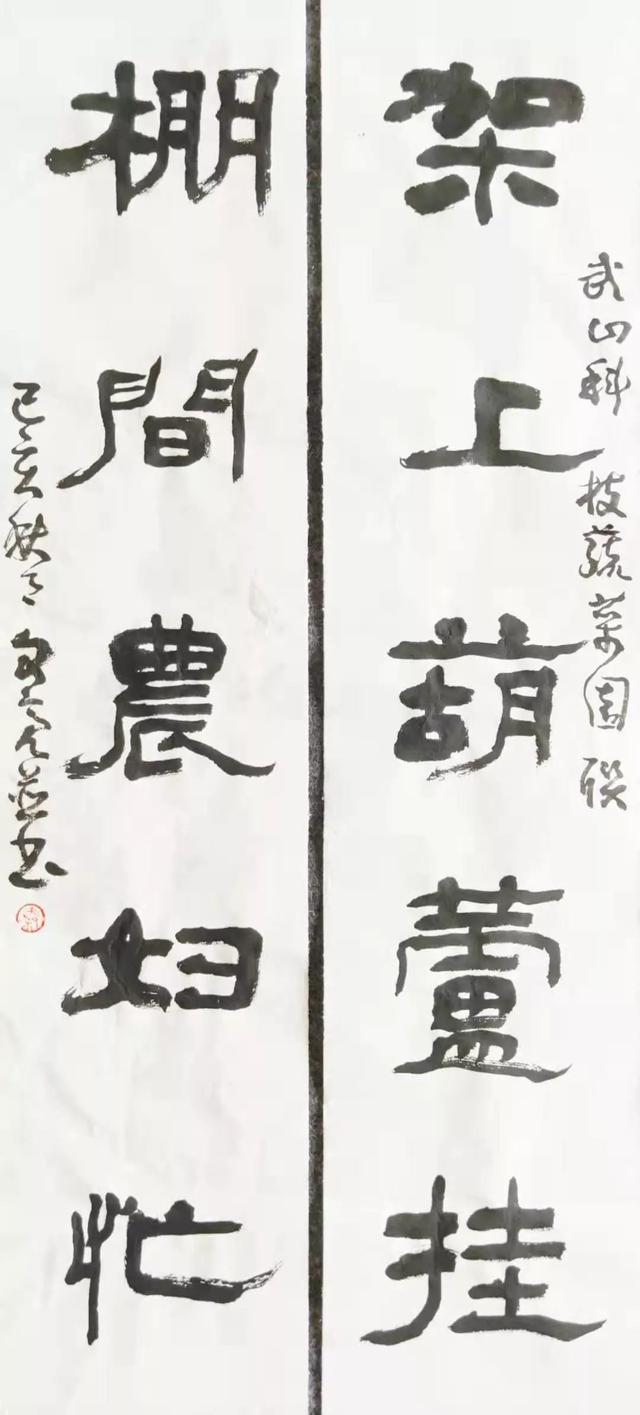 武山科技蔬菜园联
架上葫蘆挂
棚間農妇忙
己亥秋月 书